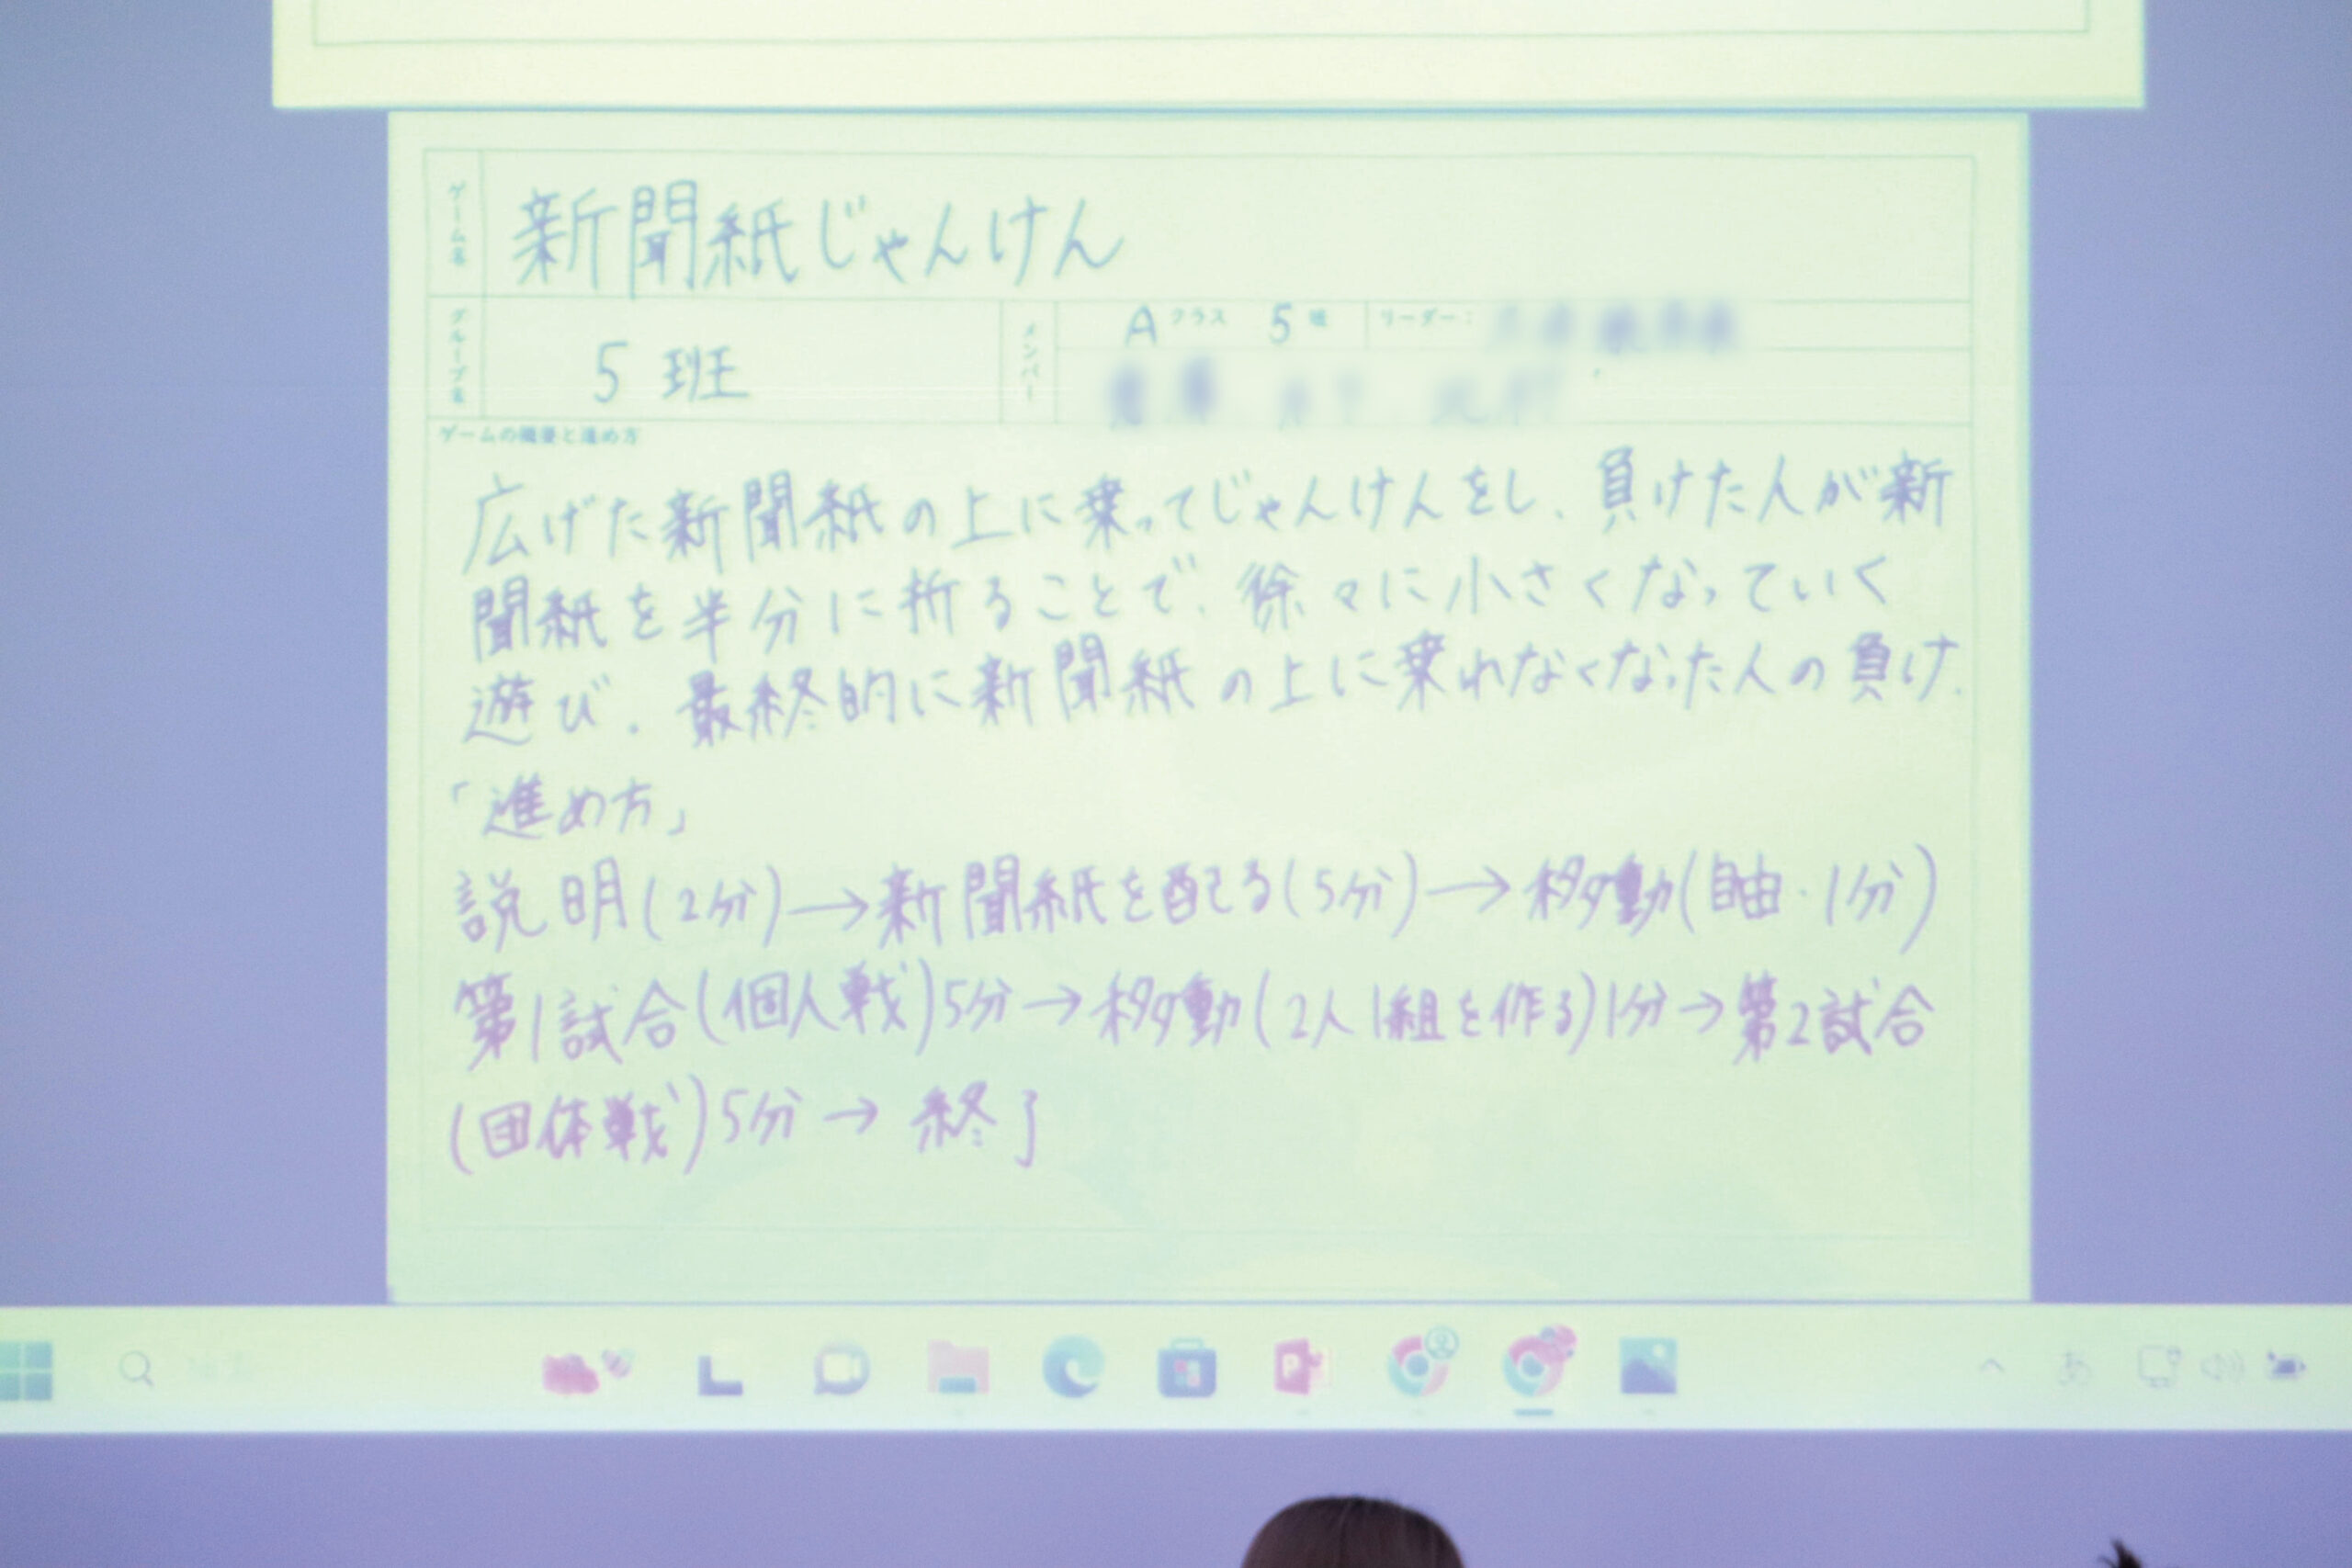 ゲーム名
新聞紙じゃんけん
グループ名
5班
メンバー
Aクラス 5班 リーダー:
ゲームの概要と進め方
広げた新聞紙の上に乗ってじゃんけんをし、負けた人が新
聞紙を半分に折ることで、徐々に小さくなっていく
遊び。最終的に新聞紙の上に乗れなくなった人の負け.
「進め方」
説明(2分)→新聞紙を配る(5分)→移動(自由・1分)
第1試合(個人戦)5分→移動(2人1組を作る)1分→第2試合
(団体戦)5分→終了
検索
あ